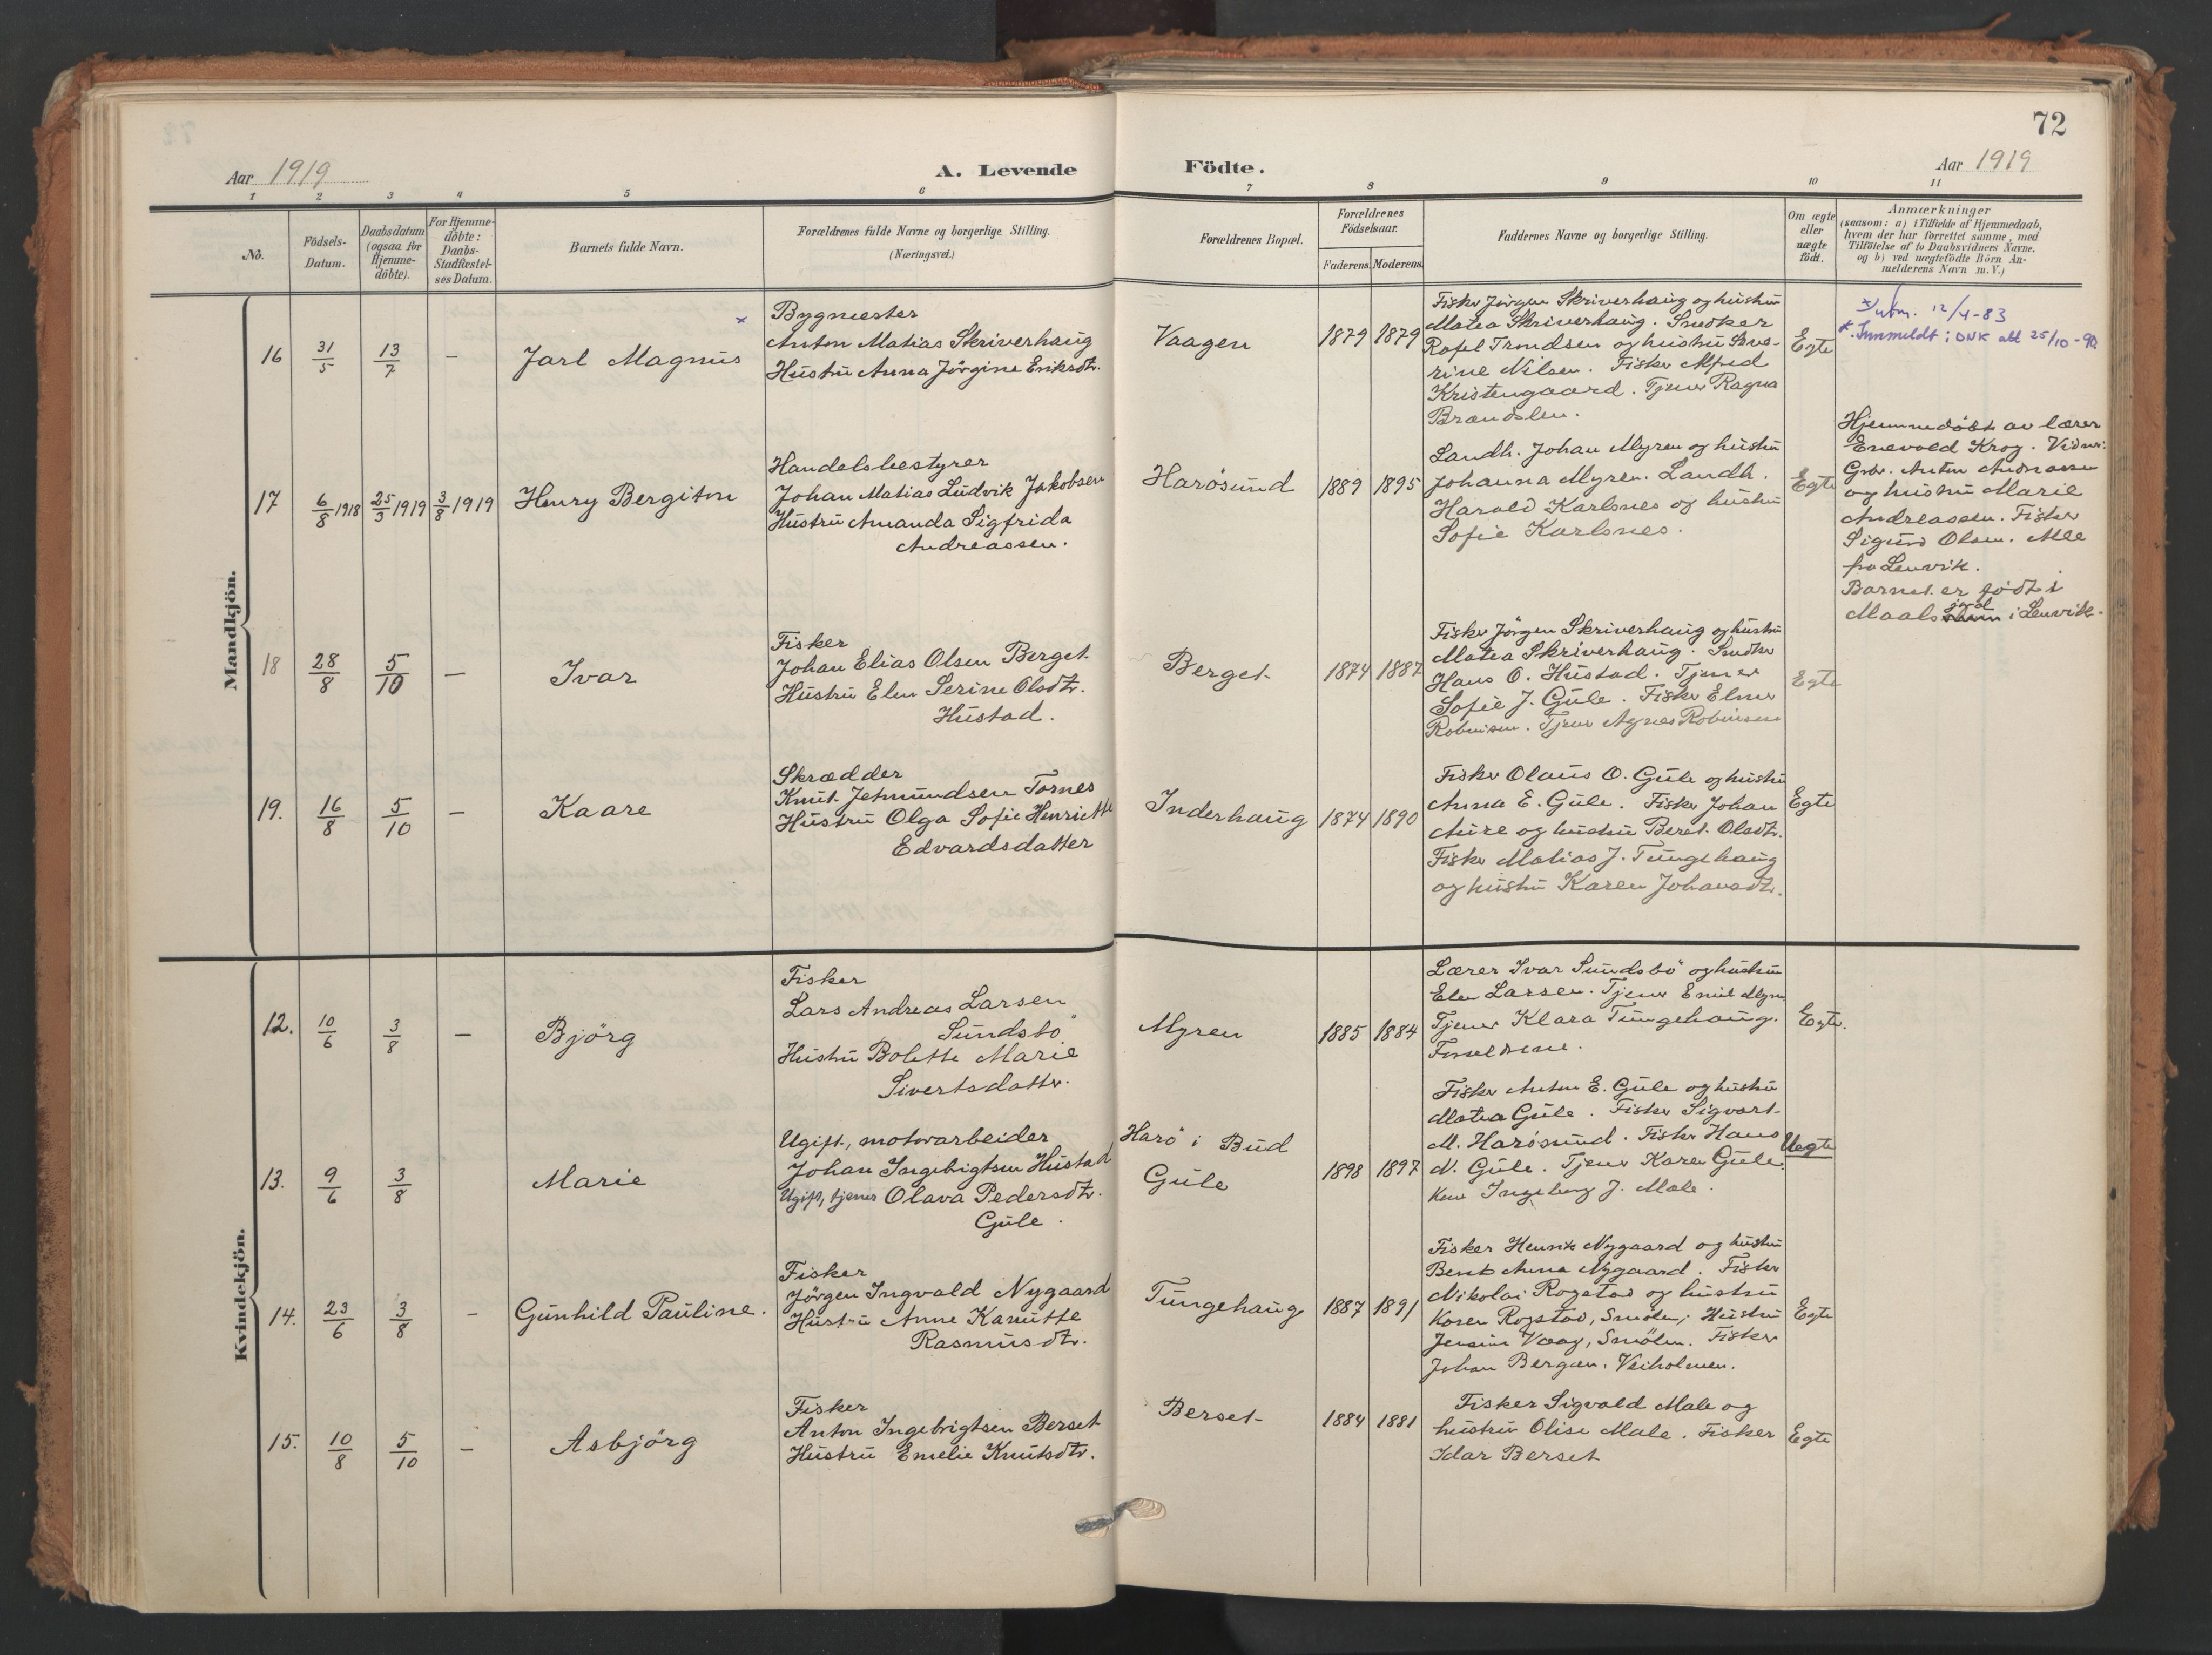 72
Aar 1919
A. Levende
Födte.
Aar 1919
1 2 3 4 5 6 7 8 9 10 11
No.
Födsels-
Datum.
Daabsdatum
(ogsaa for
Hjemme-
döbte).
For Hjemme-
döbte:
Daabs-
Stadfæstel-
ses Datum.
Barnets fulde Navn.
Forældrenes fulde Navne og borgerlige Stilling.
(Næringsvei.)
Forældrenes Bopæl.
Forældrenes
Födselsaar.
Faderens. Moderens.
Faddernes Navne og borgerlige Stilling.
Om ægte
eller
uægte
födt.
Anmærkninger
(saasom: a) i Tilfælde af Hjemmedaab,
hvem der har forrettet samme, med
Tilföielse af to Daabsvidners Navne.
og b) ved uægtefödte Börn An-
melderens Navn m. V.)
Mandkjön.
16 31/5 13/7 — Jarl Magnus ×
Bygmester
Anton Matias Skriverhaug
Hustru Anna Jörgine Eriksdtr.
Vaagen
1879 1879
Fisker Jörgen Skriverhaug og hustru
Matea Skriverhaug. Snedker
Rafel Trondsen og hustru Seve-
rine Nilsen. Fisker Alfred
Kristengaard. Tjener Ragna
Brændslen.
Egte
× Utm. 12/4-83
*. Innmeldt i DNK att 25/10-90
17 6/8 1918 25/3 1919 3/8 1919 Henry Bergiton
Handelsbestyrer
Johan Matias Ludvik Jakobsen
Hustru Amanda Sigfrida
Andreassen.
Harøsund
1889 1895
Landh. Johan Myren og hustru
Johanna Myren. Landh.
Harald Karlsnes og hustru
Sofie Karlsnes.
Egte
Hjemmedöbt av lærer
Enevold Krog. Vidner:
Grbr. Anton Andreassen
og hustru Marie
Andreassen. Fisker
Sigurd Olsen. Alle
fra Lenvik.
Barnet er födt i
Maalsjord i Lenvik.
18 28/8 5/10 — Ivar
Fisker
Johan Elias Olsen Berget
Hustru Elen Serine Olsdtr.
Hustad.
Berget
1874 1887
Fisker Jörgen Skriverhaug og hustru
Matea Skriverhaug. Snedker
Hans O. Hustad. Tjener
Sofie J. Gule. Fisker Elmer
Robinsen. Tjener Agnes Robinsen
Egte
19. 16/8 5/10 — Kaare
Skrædder
Knut Jetmundsen Tornes
Hustru Olga Sofie Henriette
Edvardsdatter
Inderhaug
1874 1890
Fisker Olaus O. Gule og hustru
Anna E. Gule. Fisker Johan
Aure og hustru Beret Olsdtr.
Fisker Matias J. Tungehaug
og hustru Karen Johansdtr.
Egte
Kvindekjön.
12. 10/6 3/8 — Björg
Fisker
Lars Andreas Larsen
Sundsbö
Hustru Bolette Marie
Sivertsdatter.
Myren
1885 1884
Lærer Ivar Sundsbö og hustru
Elen Larsen. Tjener Emil Myren
Tjener Klara Tungehaug.
Forældrene.
Egte.
13. 9/6 3/8 Marie
Ugift, motorarbeider
Johan Ingebrigtsen Hustad
Ugift, tjener Olava Pedersdtr.
Gule.
Harö i Bud
Gule
1898 1897
Fisker Anton E. Gule og hustru
Matea Gule. Fisker Sigvart
M. Harösund. Fisker Hans
N. Gule. Tjener Karen Gule.
Kone Ingeborg J. Male.
Uegte
14. 23/6 3/8 — Gunhild Pauline.
Fisker
Jörgen Ingvald Nygaard
Hustru Anne Kanutte
Rasmusdtr.
Tungehaug
1887 1891
Fisker Henrik Nygaard og hustru
Berit Anna Nygaard. Fisker
Nikolai Rogstad og hustru
Karen Rogstad, Smölen; Hustru
Jensine Vaag, Smölen. Fisker
Johan Bergen. Veiholmen.
Egte
15. 10/8 5/10 — Asbjörg
Fisker
Anton Ingebrigtsen Berset
Hustru Emelie Knutsdtr.
Berset
1884 1881
Fisker Sigvald Male og
hustru Olise Male. Fisker
Idar Berset
Egte